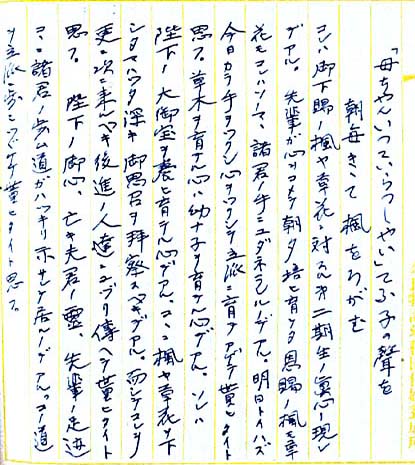 「母ちやんいつていらつしやい」てふ子の聲を
朝毎きゝて楓をろがむ
コレハ御下賜ノ楓ヤ草花ニ對スル第二期生ノ眞心ノ現レ
デアル。先輩が心ヲコメテ朝夕培ヒ育テタ恩賜ノ楓モ草
花モコレソノママ、諸君ノ手ニユダネラレルノデアル。明日トイハズ
今日カラ手ヲツクシ心ヲツクシテ立派ニ育テアゲテ貰ヒタイト
思フ。草木ヲ育テル心ハ幼ナ子ヲ育テル心デアル。ソレハ
陛下ノ大御宝ヲ養ヒ育テル心デアル。ココニ楓ヤ草花ヲ下
シタマハツタ深キ御思召ヲ拝察スベキデアル。而シテコレヲ
更ニ次ニ来ルベキ後進ノ人達ニユヅリ傳ヘテ貰ヒタイト
思フ。陛下ノ御心、亡キ夫君ノ靈、先輩ノ足迹
ココニ諸君ノ歩ム道ガハツキリ示サレテ居ルノデアル。コノ道
ヲ立派ニ歩ミツヅケテ貰ヒタイト思フ。